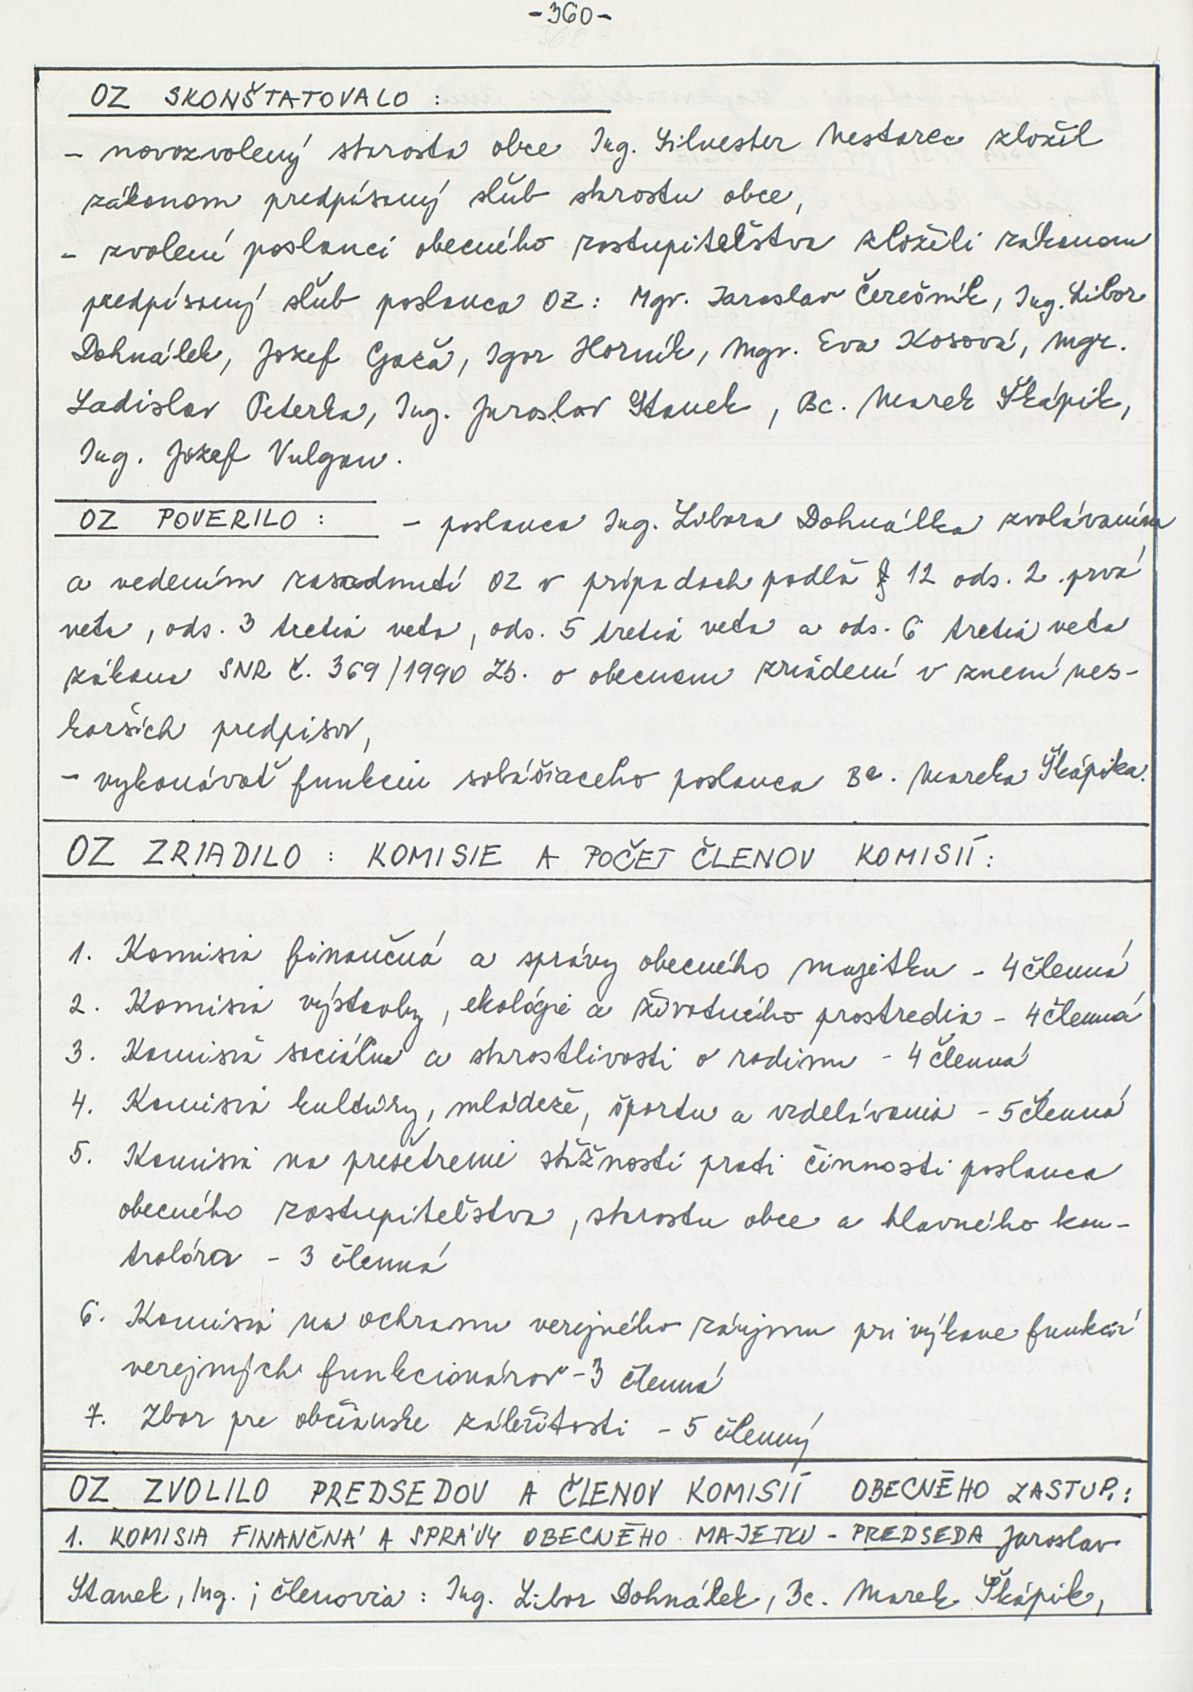 -360-
OZ SKONŠTATOVALO :
- novozvolený starosta obce Ing. Silvester Nestarec zložil
zákonom predpísaný sľub starostu obce,
- zvolení poslanci obecného zastupiteľstva zložili zákonom
predpísaný sľub poslanca OZ: Mgr. Jaroslav Čerešník, Ing. Libor
Dohnálek, Jozef Gača, Igor Horník, Mgr. Eva Kosová, Mgr.
Ladislav Peterka, Ing. Jaroslav Stanek, Bc. Marek Škápik,
Ing. Jozef Vulgan.
OZ POVERILO : - poslanca Ing. Libora Dohnálka zvolávaním
a vedením zasadnutí OZ v prípadoch podľa § 12 ods. 2 prvá
veta, ods. 3 tretia veta, ods. 5 tretia veta a ods. 6 tretia veta
zákona SNR č. 369/1990 Zb. o obecnom zriadení v znení nes-
korších predpisov,
- vykonávať funkciu sobášiaceho poslanca Bc. Mareka Škápika.
OZ ZRIADILO : KOMISIE A POČET ČLENOV KOMISIÍ:
1. Komisia finančná a správy obecného majetku - 4 členná
2. Komisia výstavby, ekológie a životného prostredia - 4 členná
3. Komisia sociálna a starostlivosti o rodinu - 4 členná
4. Komisia kultúry, mládeže, športu a vzdelávania - 5 členná
5. Komisia na prešetrenie sťažností proti činnosti poslanca
obecného zastupiteľstva, starostu obce a hlavného kon-
trolóra - 3 členná
6. Komisia na ochranu verejného záujmu pri výkone funkcií
verejných funkcionárov - 3 členná
7. Zbor pre občianske záležitosti - 5 členný
OZ ZVOLILO PREDSEDOV A ČLENOV KOMISIÍ OBECNÉHO ZASTUP.:
1. KOMISIA FINANČNÁ A SPRÁVY OBECNÉHO MAJETKU - PREDSEDA Jaroslav
Stanek, Ing.; členovia : Ing. Libor Dohnálek, Bc. Marek Škápik,